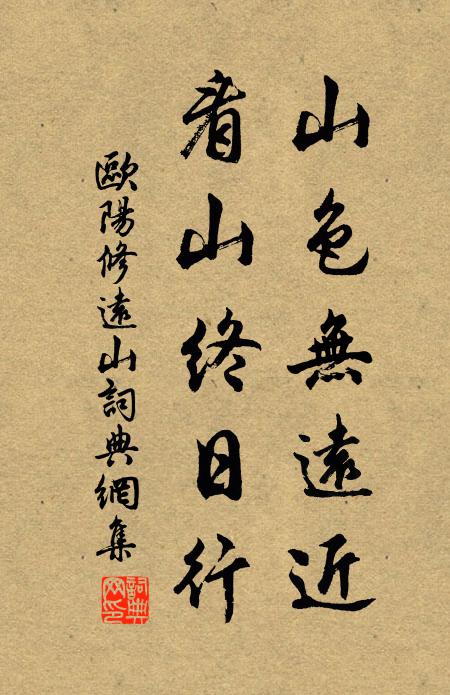 山色無遠近
看山終日行
歐陽修遠山詞典網集
詞典网印